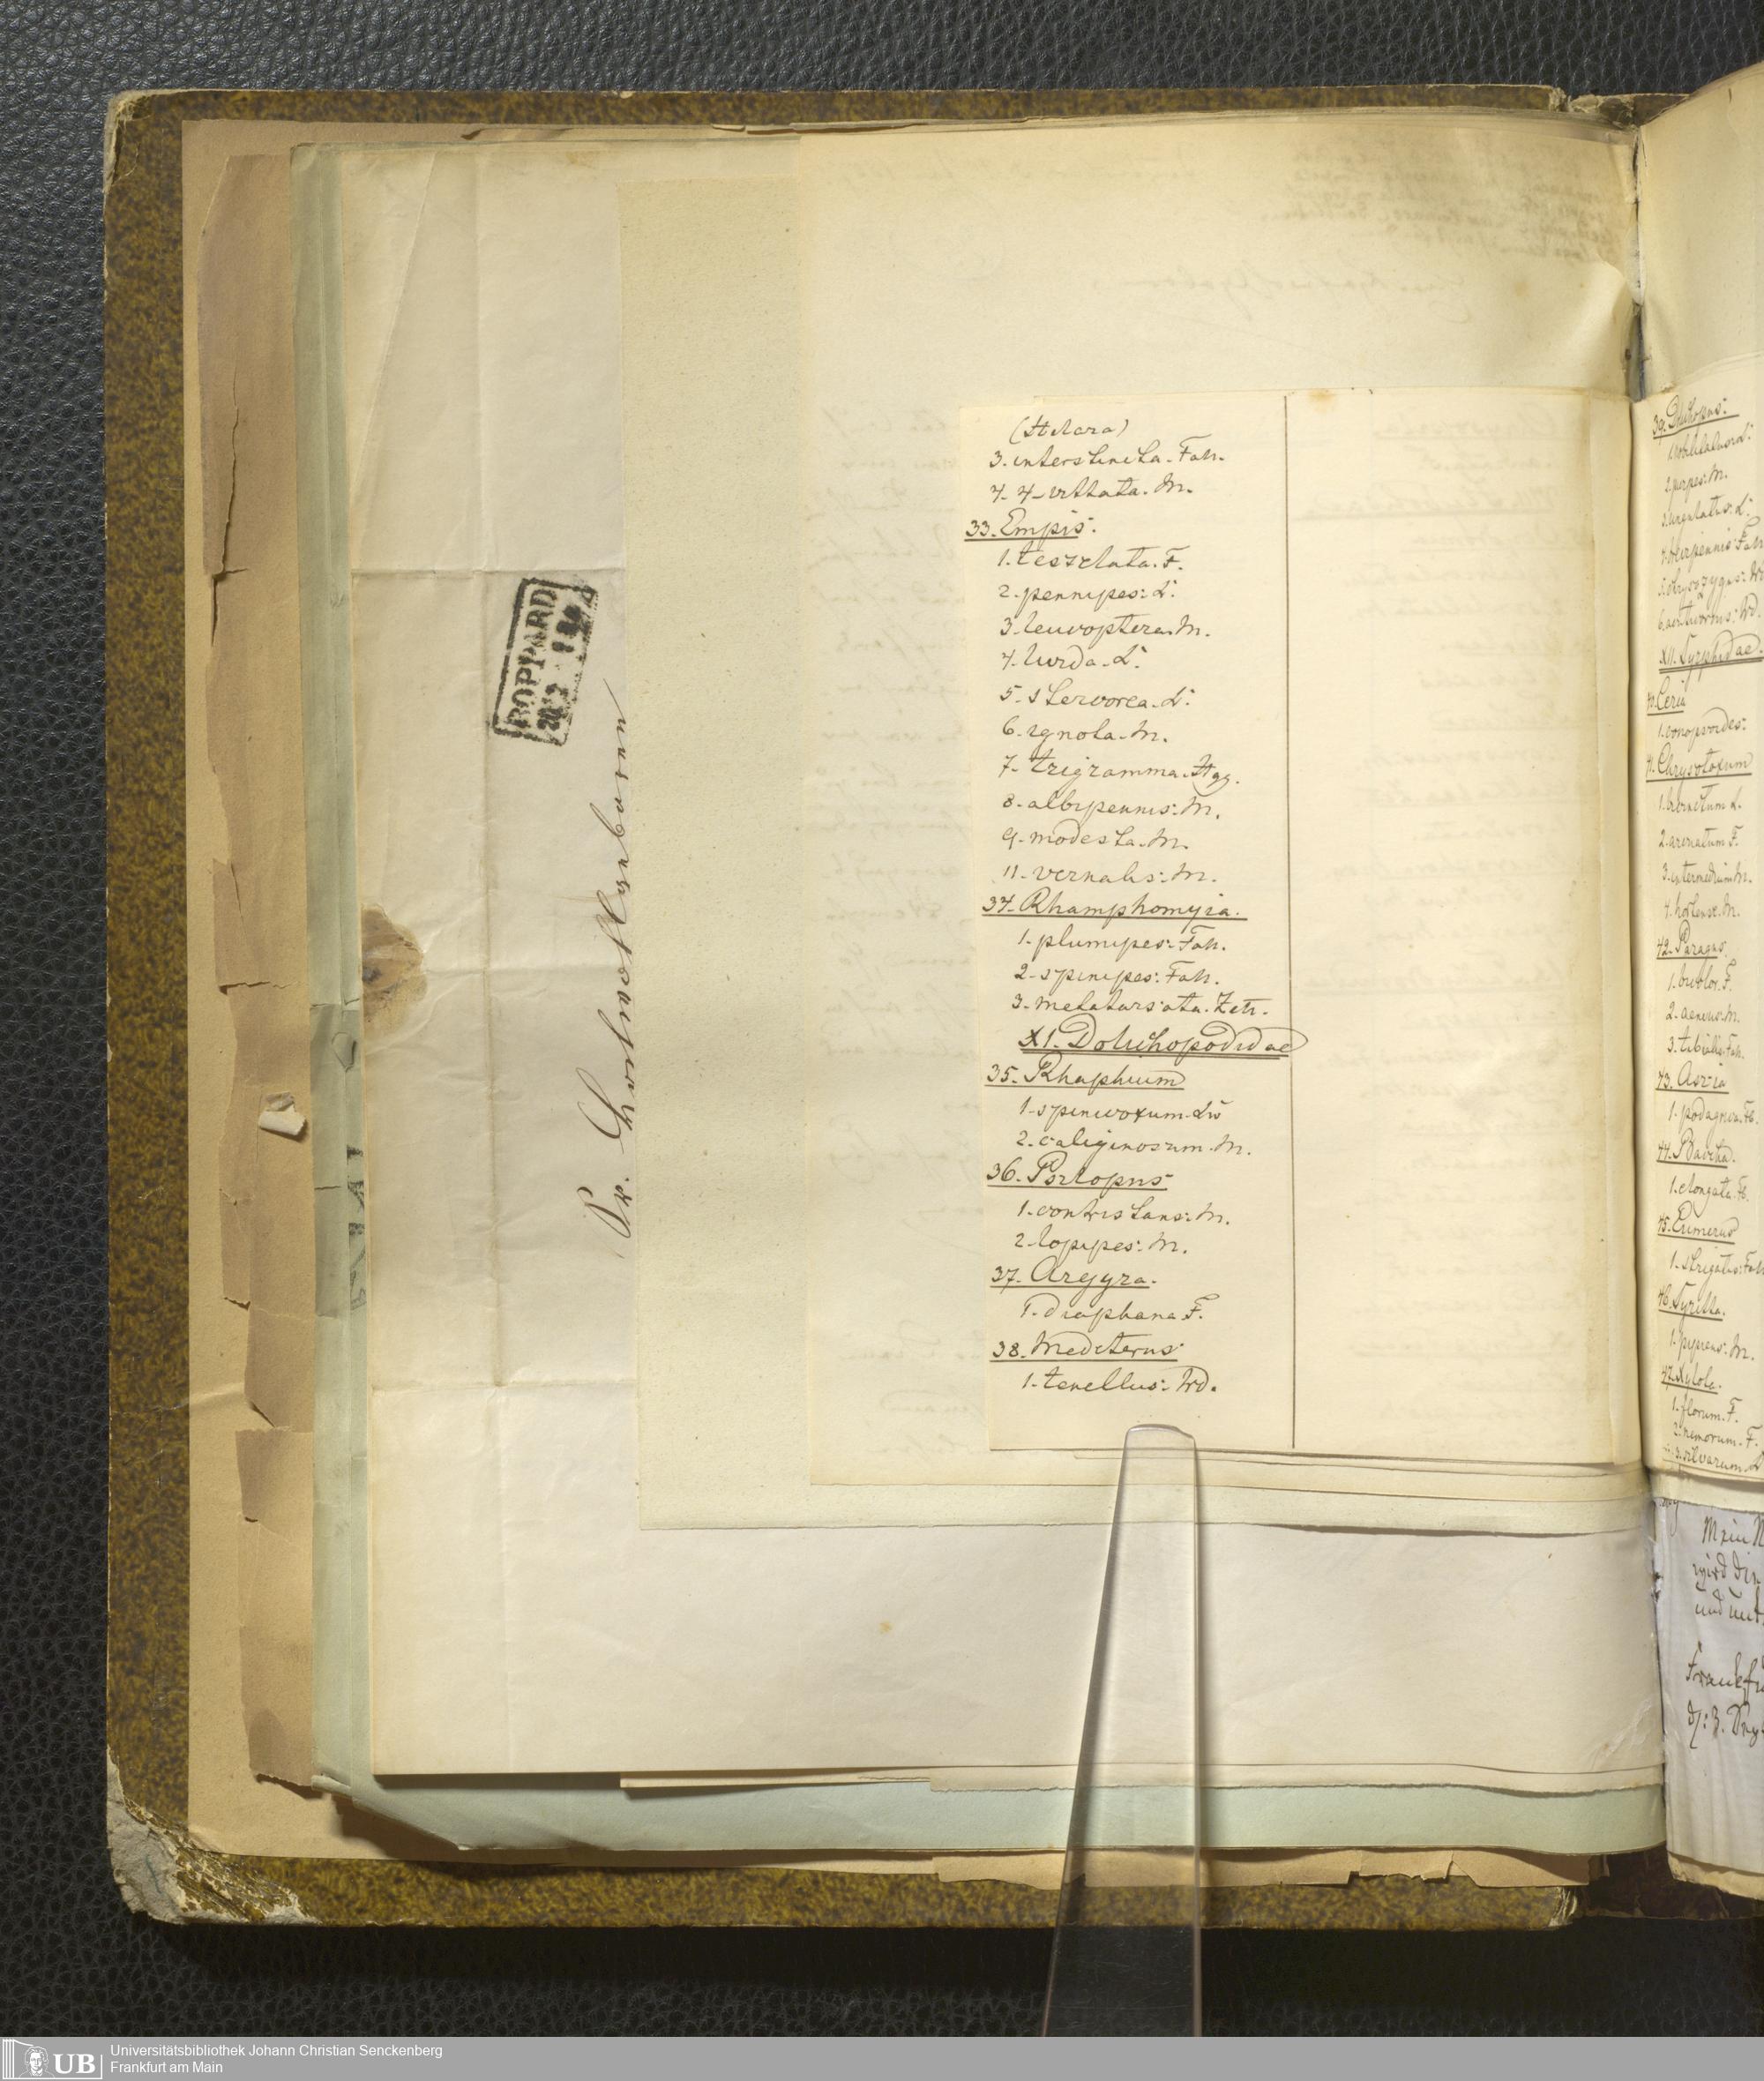 (Hilara)
3. interstincta. Fall.
4. 4-vittata. M.
33. Empis.
1. tesselata. F.
2. pennipes: L.
3. leucoptera. M.
4. lurda. L.
5. stercorea. L.
6. ignota. M.
7. trigramma. Hgg.
8. albipennis: M.
9. modesta. M.
11. vernalis: M.
34. Rhamphomyia.
1. plumipes: Fall.
2. spinipes: Fall.
3. metatarsata. Zett.
XI. Dolichopodidae
35. Rhaphium
1. spinicoxum. Lw
2. caliginosum. M.
36. Psilopus
1. contristans: M.
2. lopipes: M.
37. Argyra.
1. diaphana F.
38. Medeterus
1. tenellus: Wd.
BOPPARD
39. Dolichopus:
1. nobilitatus L:
2. pospes: M.
3. ungulatus: L:
5. chrysozygus: W
XII. Syrphidae.
40. Ceria
1. conopsoides:
41. Chrysotoxum
1. bicinctum L.
2. arcuatum F.
3. intermedium M.
4. hortense. M.
42. Paragus.
1. bicolor. F.
2. aeneus. M.
3. tibialis. Fall.
43. Ascia
1. podagrica. Fb.
44. Baccha.
1. elongata. Fb.
45. Eumerus
1. strigatus: Fall
46. Syritta.
1. pipiens: M.
47. Xylota.
1. florum. F.
2. nemorum. F.
3. silvarum L
Mein
wird die
und
Frankfu
Universitätsbibliothek Johann Christian Senckenberg
Frankfurt am Main
UB